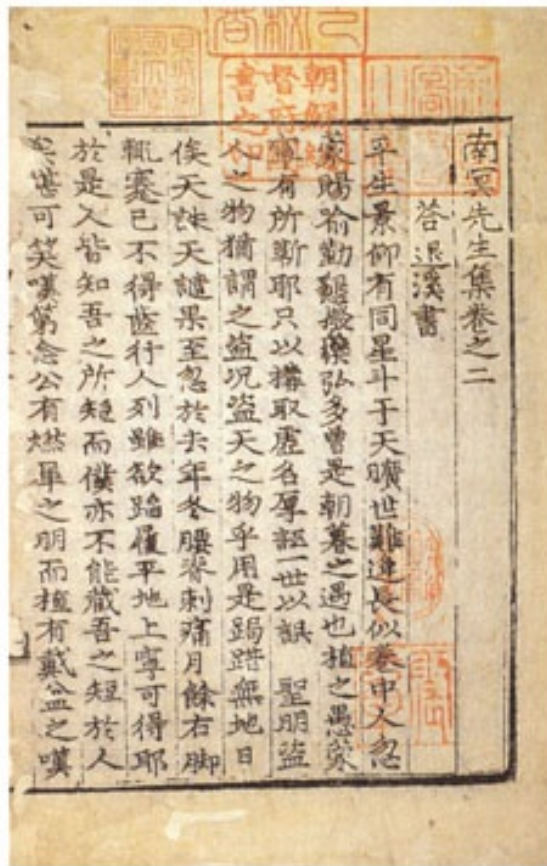 南冥先生集卷之二
答退溪書
平生景仰有同星斗于天曠世難逢長似卷中人忽
蒙賜喻勤懇撥藥弘多曾是朝暮之遇也植之愚蒙
寧有所靳耶只以構取虛名厚誣一世以誤 聖明盜
人之物猶謂之盜况盜天之物乎用是跼蹐無地日
俟天誅天譴果至忽於去年冬腰脊刺痛月餘右脚
輒蹇已不得齒行人列雖欲蹈履平地上寧可得耶
於是人皆知吾之所短而僕亦不能藏吾之短於人
矣堪可笑嘆第念公有燃犀之明而植有戴盆之嘆
朝鮮總
督府圖
書之印